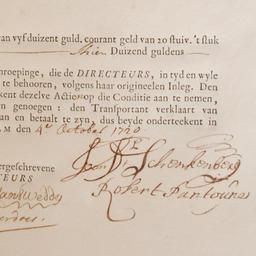 van vyf duizent guld. courant geld van 20 stuiv. 't stuk
Duizend guldens
hroepinge, die de DIRECTEURS, in tyd en wyle
te behooren, volgens haar origineelen Inleg. Den
ekent dezelve Actie op die Conditie aan te nemen,
en genoegen : den Transportant verklaart van
an en betaalt te zyn, dus beyde onderteekent in
AM den 4e October 1720
ergeschrevene
TEURS
Schonkenberg
Robert Pantoune